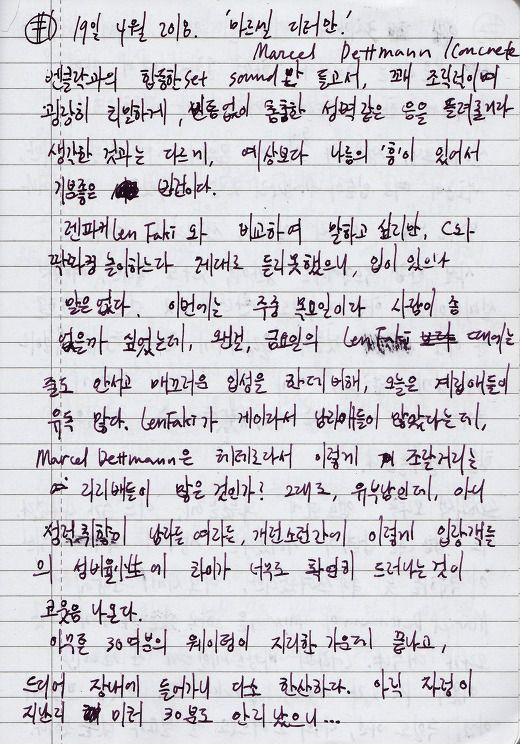 # 19일 4월 2018. '마르셀 데터만.'
Marcel Dettmann / Concrete
벤클락과의 합동한 set sound만 듣고서, 꽤 조악적이며
굉장히 리얼하게, 빈틈없이 통통한 성벽같은 음을 들려줄거라
생각한 것과는 다르게, 예상보다 나름의 '흥'이 있어서
기분좋은 밤검이다.
렌파키 Len Faki 와 비교하여 말하고 싶지만, C와
꽉꽉 놀아하느라 제대로 듣지못했으니, 입이 있으나
말은없다. 이번에는 주중 목요일이라 사람이 좀
없을까 싶었는데, 왠걸, 금요일의 Len Faki 때에는
줄도 안서고 매끄러운 입성을 한데비해, 오늘은 계집애들이
유독 많다. Len Faki가 게이라서 남자애들이 많았다는데,
Marcel Dettmann은 헤테로라서 이렇게 조잘거리는
리리배들이 많은 것인가? 그래도, 유부남인데, 아니
성적취향이 남자든 여자든, 개런소런간에 이렇게 입장객들
의 성비율에 차이가 너무도 확연히 드러나는것이
코웃음 나온다.
아무튼 30여분의 웨이팅이 지리한 가운데 끝나고,
드디어 장내에 들어가니 다소 한산하다. 아직 자정이
지난지 미처 30분도 안지났으니...